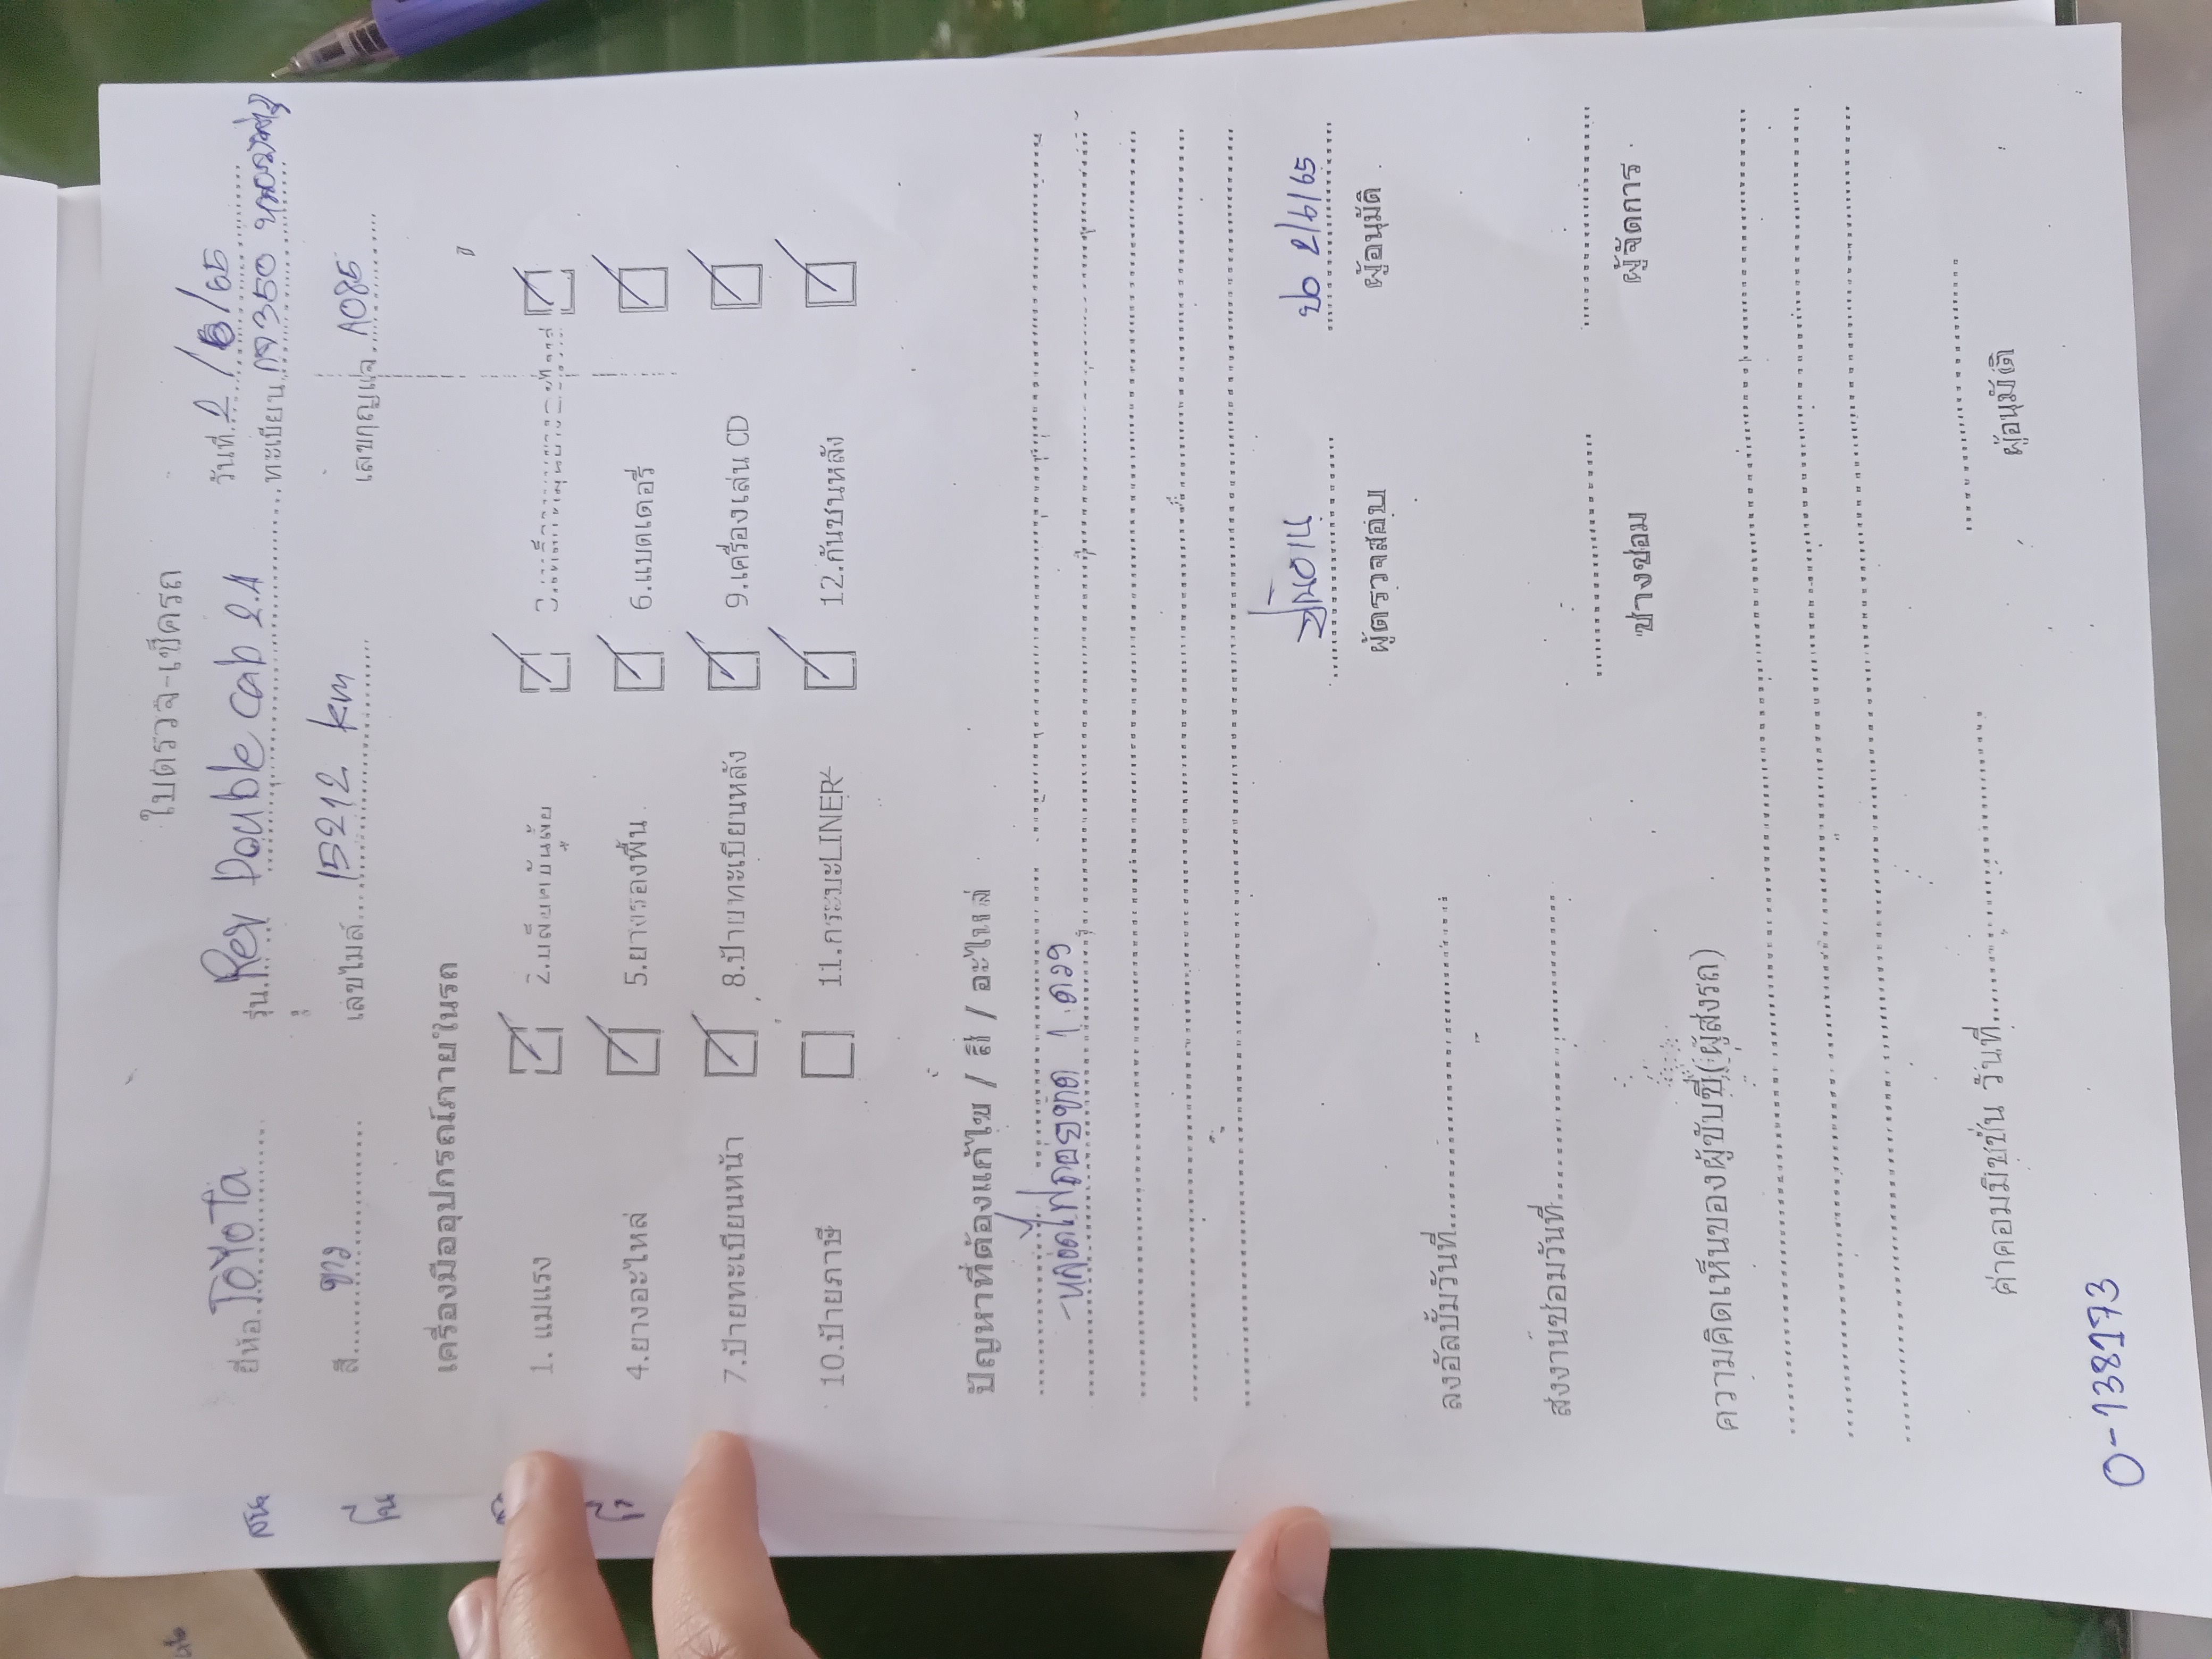 ใบตรวจ-เช็ครถ
วันที่ 2/6/65
ยี่ห้อ TOYOTA รุ่น Rev Double cab 2.4 ทะเบียน 350
สี ขาว เลขไมล์ 15212 km เลขกุญแจ A085
เครื่องมืออุปกรณ์ภายในรถ
1. แม่แรง 2.บล็อคขันน๊อต
4.ยางอะไหล่ 5.ยางรองพื้น 6.แบตเตอรี่
7.ป้ายทะเบียนหน้า 8.ป้ายทะเบียนหลัง 9.เครื่องเล่น CD
10.ป้ายภาษี 11.กระบะLINER 12.กันชนหลัง
ปัญหาที่ต้องแก้ไข / สี / อะไหล่
-หลอดไฟถอยขาด 1 ดวง
2/6/65
ผู้ตรวจสอบ ผู้อนุมัติ
ลงอัลบั้มวันที่
ส่งงานซ่อมวันที่
ช่างซ่อม ผู้จัดการ
ความคิดเห็นของผู้ขับขี่(ผู้ส่งรถ)
ค่าคอมมิชชั่น วันที่
ผู้อนุมัติ
0-138173